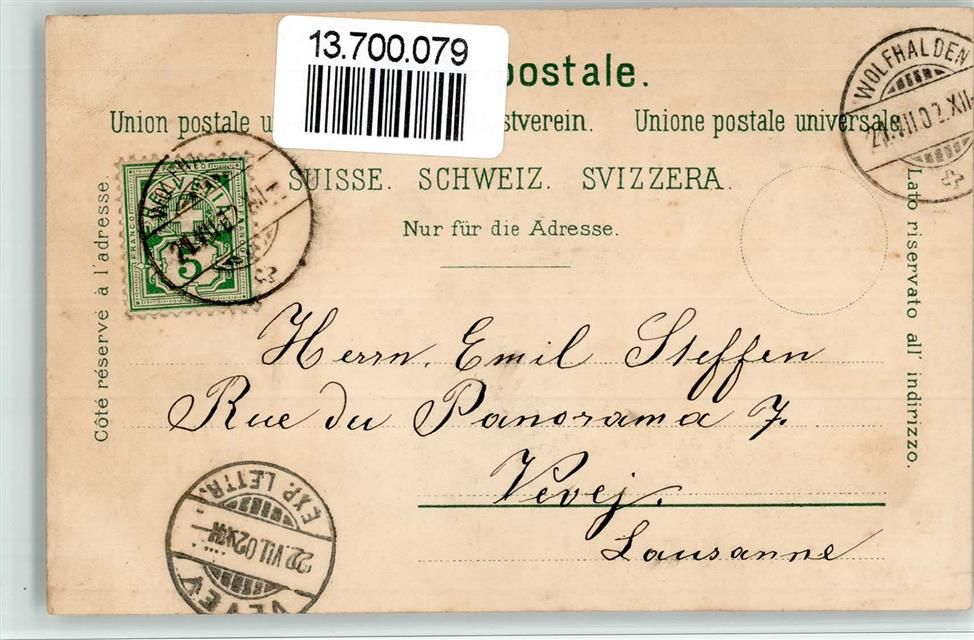 13.700.079
postale.
Union postale u stverein. Unione postale universale
SUISSE. SCHWEIZ. SVIZZERA.
Nur für die Adresse.
Côté réservé à l'adresse.
Lato riservato all' indirizzo.
WOLFHALDEN
FRANCO
HELVETIA
5
Herrn. Emil Steffen
Rue du Panorama 7.
Vevej.
Lausanne
EXP. LETTR.
22.VII.02
VEVEY